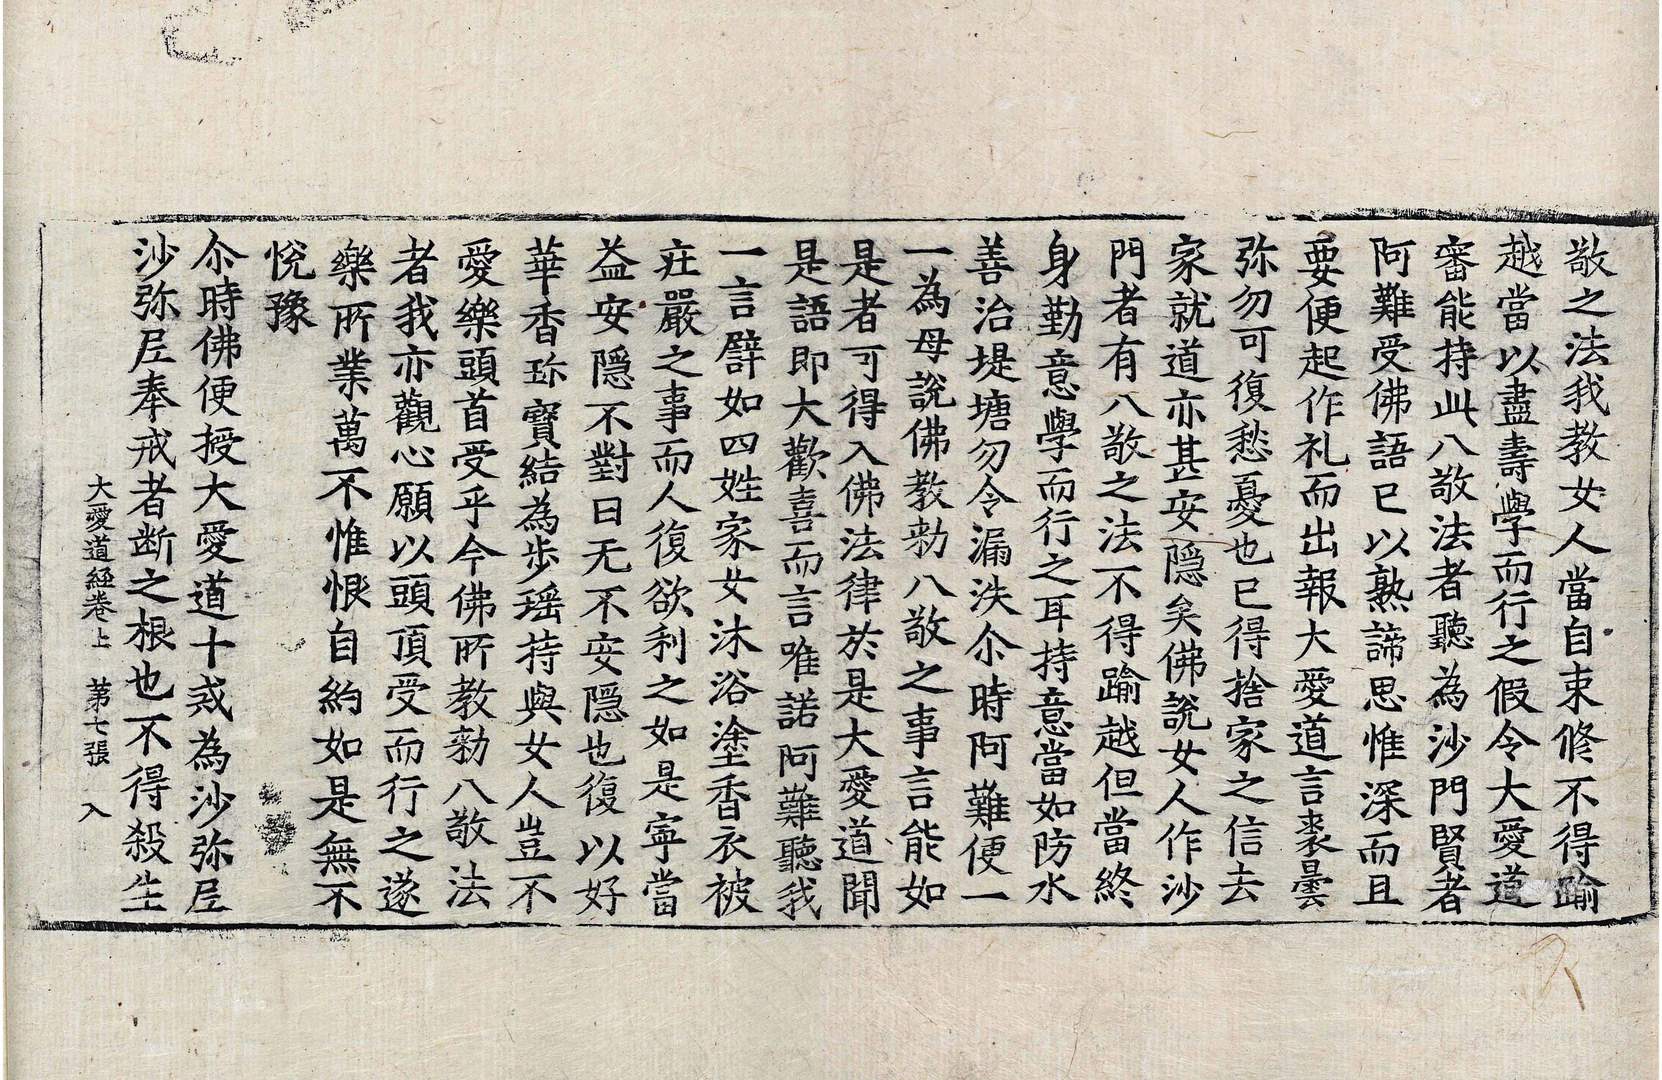 敬之法我教女人當自束修不得踰
越當以盡壽學而行之假令大愛道
審能持此八敬法者聽為沙門賢者
阿難受佛語已以熟諦思惟深而且
要便起作礼而出報大愛道言裘曇
弥勿可復愁憂也已得捨家之信去
家就道亦甚安隠矣佛說女人作沙
門者有八敬之法不得踰越但當終
身勤意學而行之耳持意當如防水
善治堤塘勿令漏泆尒時阿難便一
一為母說佛教勑八敬之事言能如
是者可得入佛法律於是大愛道聞
是語即大歡喜而言唯諾阿難聽我
一言譬如四姓家女沐浴塗香衣被
莊嚴之事而人復欲利之如是寧當
益安隠不對曰无不安隠也復以好
華香珎寶結為步瑶持與女人豈不
愛樂頭首受乎今佛所教勑八敬法
者我亦觀心願以頭頂受而行之遂
樂所業萬不惟恨自約如是無不
悅豫
尒時佛便授大愛道十戒為沙弥𡰱
沙弥𡰱奉戒者断之根也不得殺生
大愛道經卷上 第七張 入